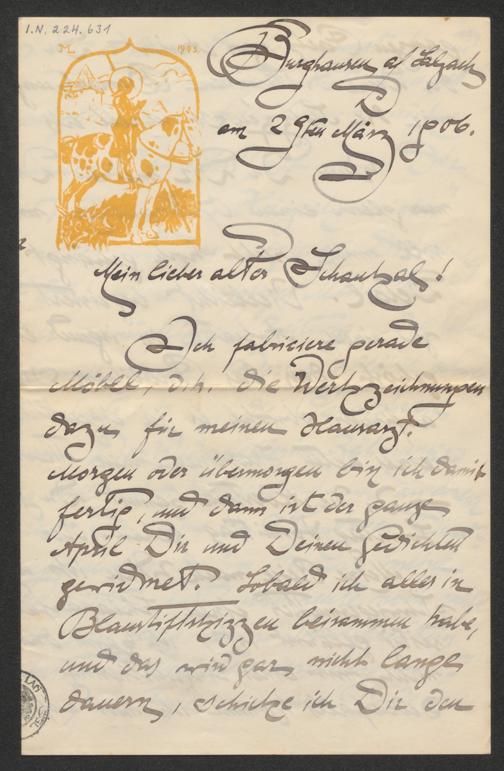 I.N. 224.631
1905
Burghausen a/ Salzach
am 29ten März 1906.
Mein lieber alter Schaukal!
Ich fabriciere gerade
Möbel, d.h. die Werkzeichnungen
dazu für meinen Hausarzt.
Morgen oder übermorgen bin ich damit
fertig, und dann ist der ganze
April Dir und Deinen Gedichten
gewidmet. Sobald ich alles in
Blaustiftskizzen beisammen habe,
und das wird gar nicht lange
dauern, schicke ich Dir den